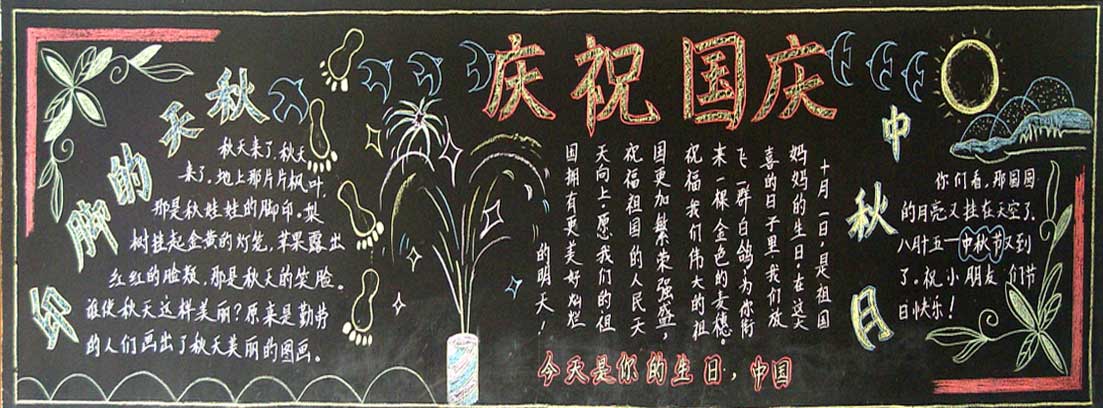 庆祝国庆
秋天的脚印
秋天来了,秋天
来了。地上那片片枫叶,
那是秋娃娃的脚印。梨
树挂起金黄的灯笼,苹果露出
红红的脸颊,那是秋天的笑脸。
谁使秋天这样美丽?原来是勤劳
的人们画出了秋天美丽的图画。
十月一日,是祖国
妈妈的生日,在这天
喜的日子里,我们放
飞一群白鸽,为你衔
来一棵金色的麦穗。
祝福我们伟大的祖
国更加繁荣强盛,
祝福祖国的人民天
天向上;愿我们的祖
国拥有更美好灿烂
的明天!
今天是你的生日,中国
中秋月
你们看,那圆圆
的月亮又挂在天空了,
八月十五一中秋节又到
了。祝小朋友们节
日快乐!